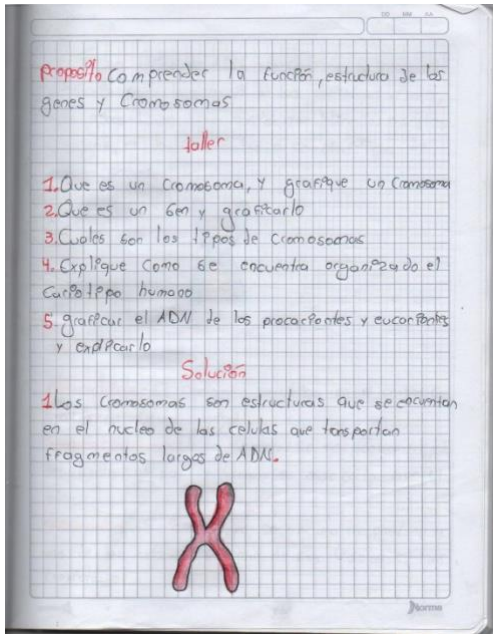 DD MM AA
Proposito Comprender la función, estructura de los
genes y Cromosomas
taller
1. Que es un Cromosoma, y grafique un Cromosoma
2. Que es un Gen y grafitarlo
3. Cuales son los tipos de cromosomas
4. Explique Como se encuentra organizado el
Cariotipo humano
5. graficar el ADN de los procariontes y eucariontes
y explicarlo
Solución
1 Los Cromosomas son estructuras que se encuentran
en el nucleo de las celulas que transportan
fragmentos largos de ADN.
Norma